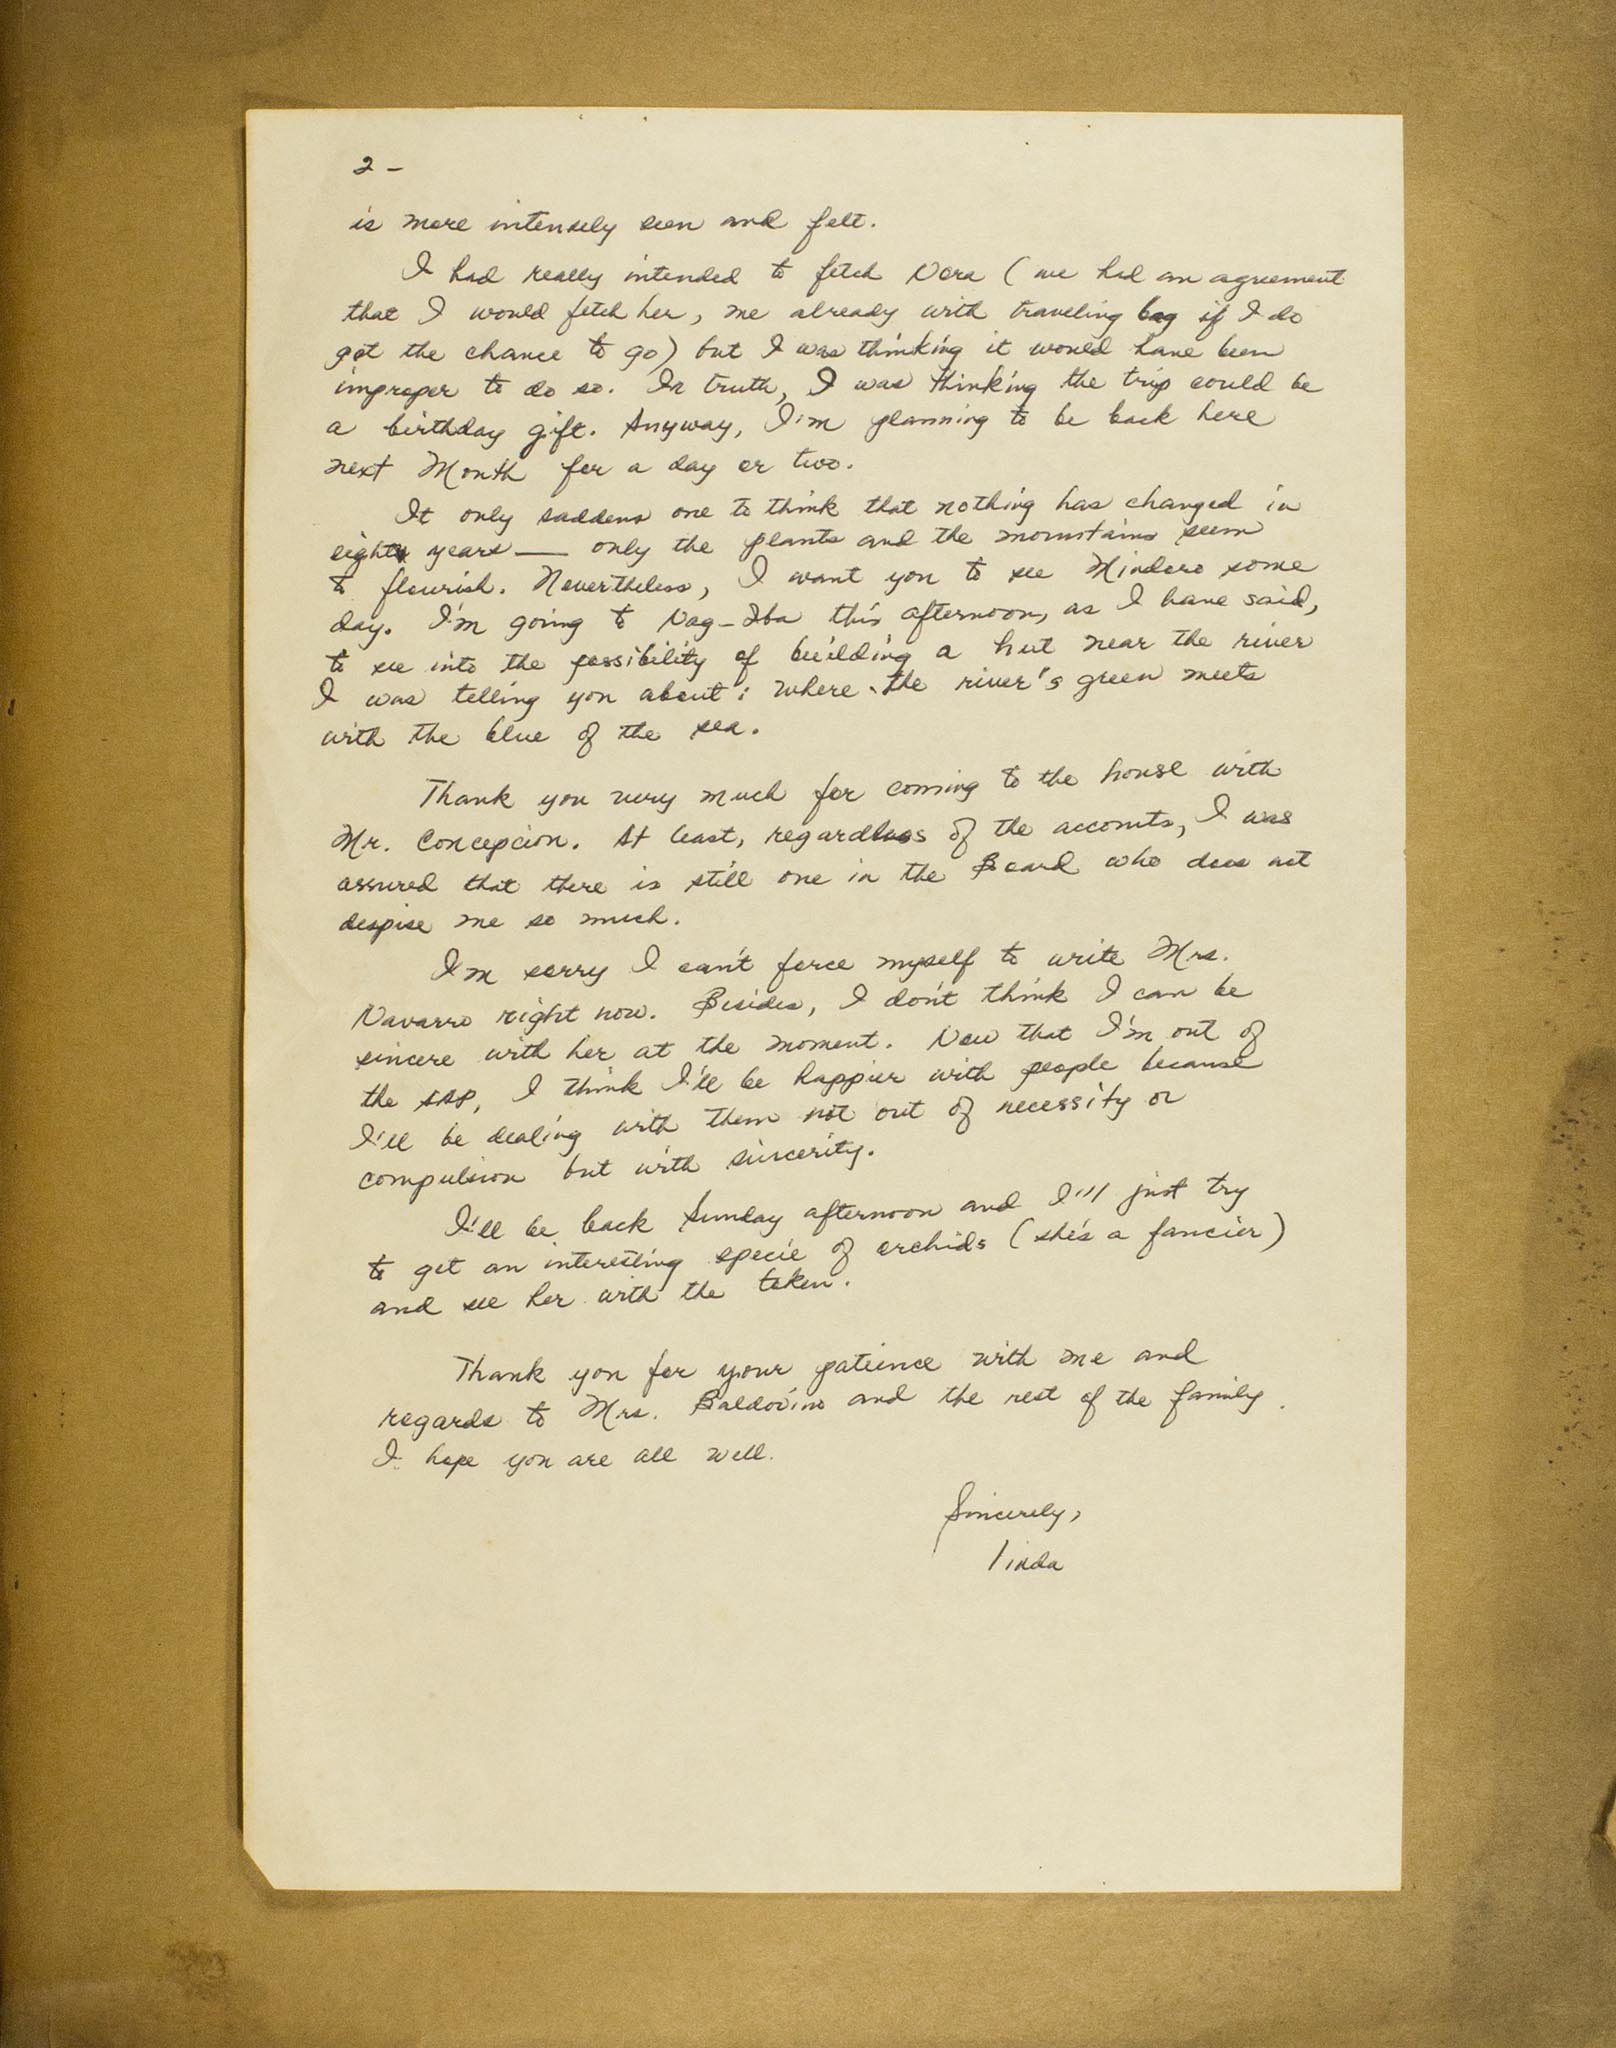 2 -
is more intensely seen and felt.
I had really intended to fetch Nora (we had an agreement
that I would fetch her, me already with traveling bag if I do
get the chance to go) but I was thinking it would have been
improper to do so. In truth, I was thinking the trip could be
a birthday gift. Anyway, I'm planning to be back here
next Month for a day or two.
It only saddens one to think that nothing has changed in
eight years — only the plants and the mountains seem
to flourish. Nevertheless, I want you to see Mindoro some
day. I'm going to Nag-Iba this afternoon, as I have said,
to see into the possibility of building a hut near the river
I was telling you about; where the river's green meets
with the blue of the sea.
Thank you very much for coming to the house with
Mr. Concepcion. At least, regardless of the accounts, I was
assured that there is still one in the Board who does not
despise me so much.
I'm sorry I can't force myself to write Mrs.
Navarro right now. Besides, I don't think I can be
sincere with her at the moment. Now that I'm out of
the AAP, I think I'll be happier with people because
I'll be dealing with them not out of necessity or
compulsion but with sincerity.
I'll be back Sunday afternoon and I'll just try
to get an interesting specie of orchids (she's a fancier)
and see her with the token.
Thank you for your patience with me and
regards to Mrs. Baldovino and the rest of the family.
I hope you are all well.
Sincerely,
linda